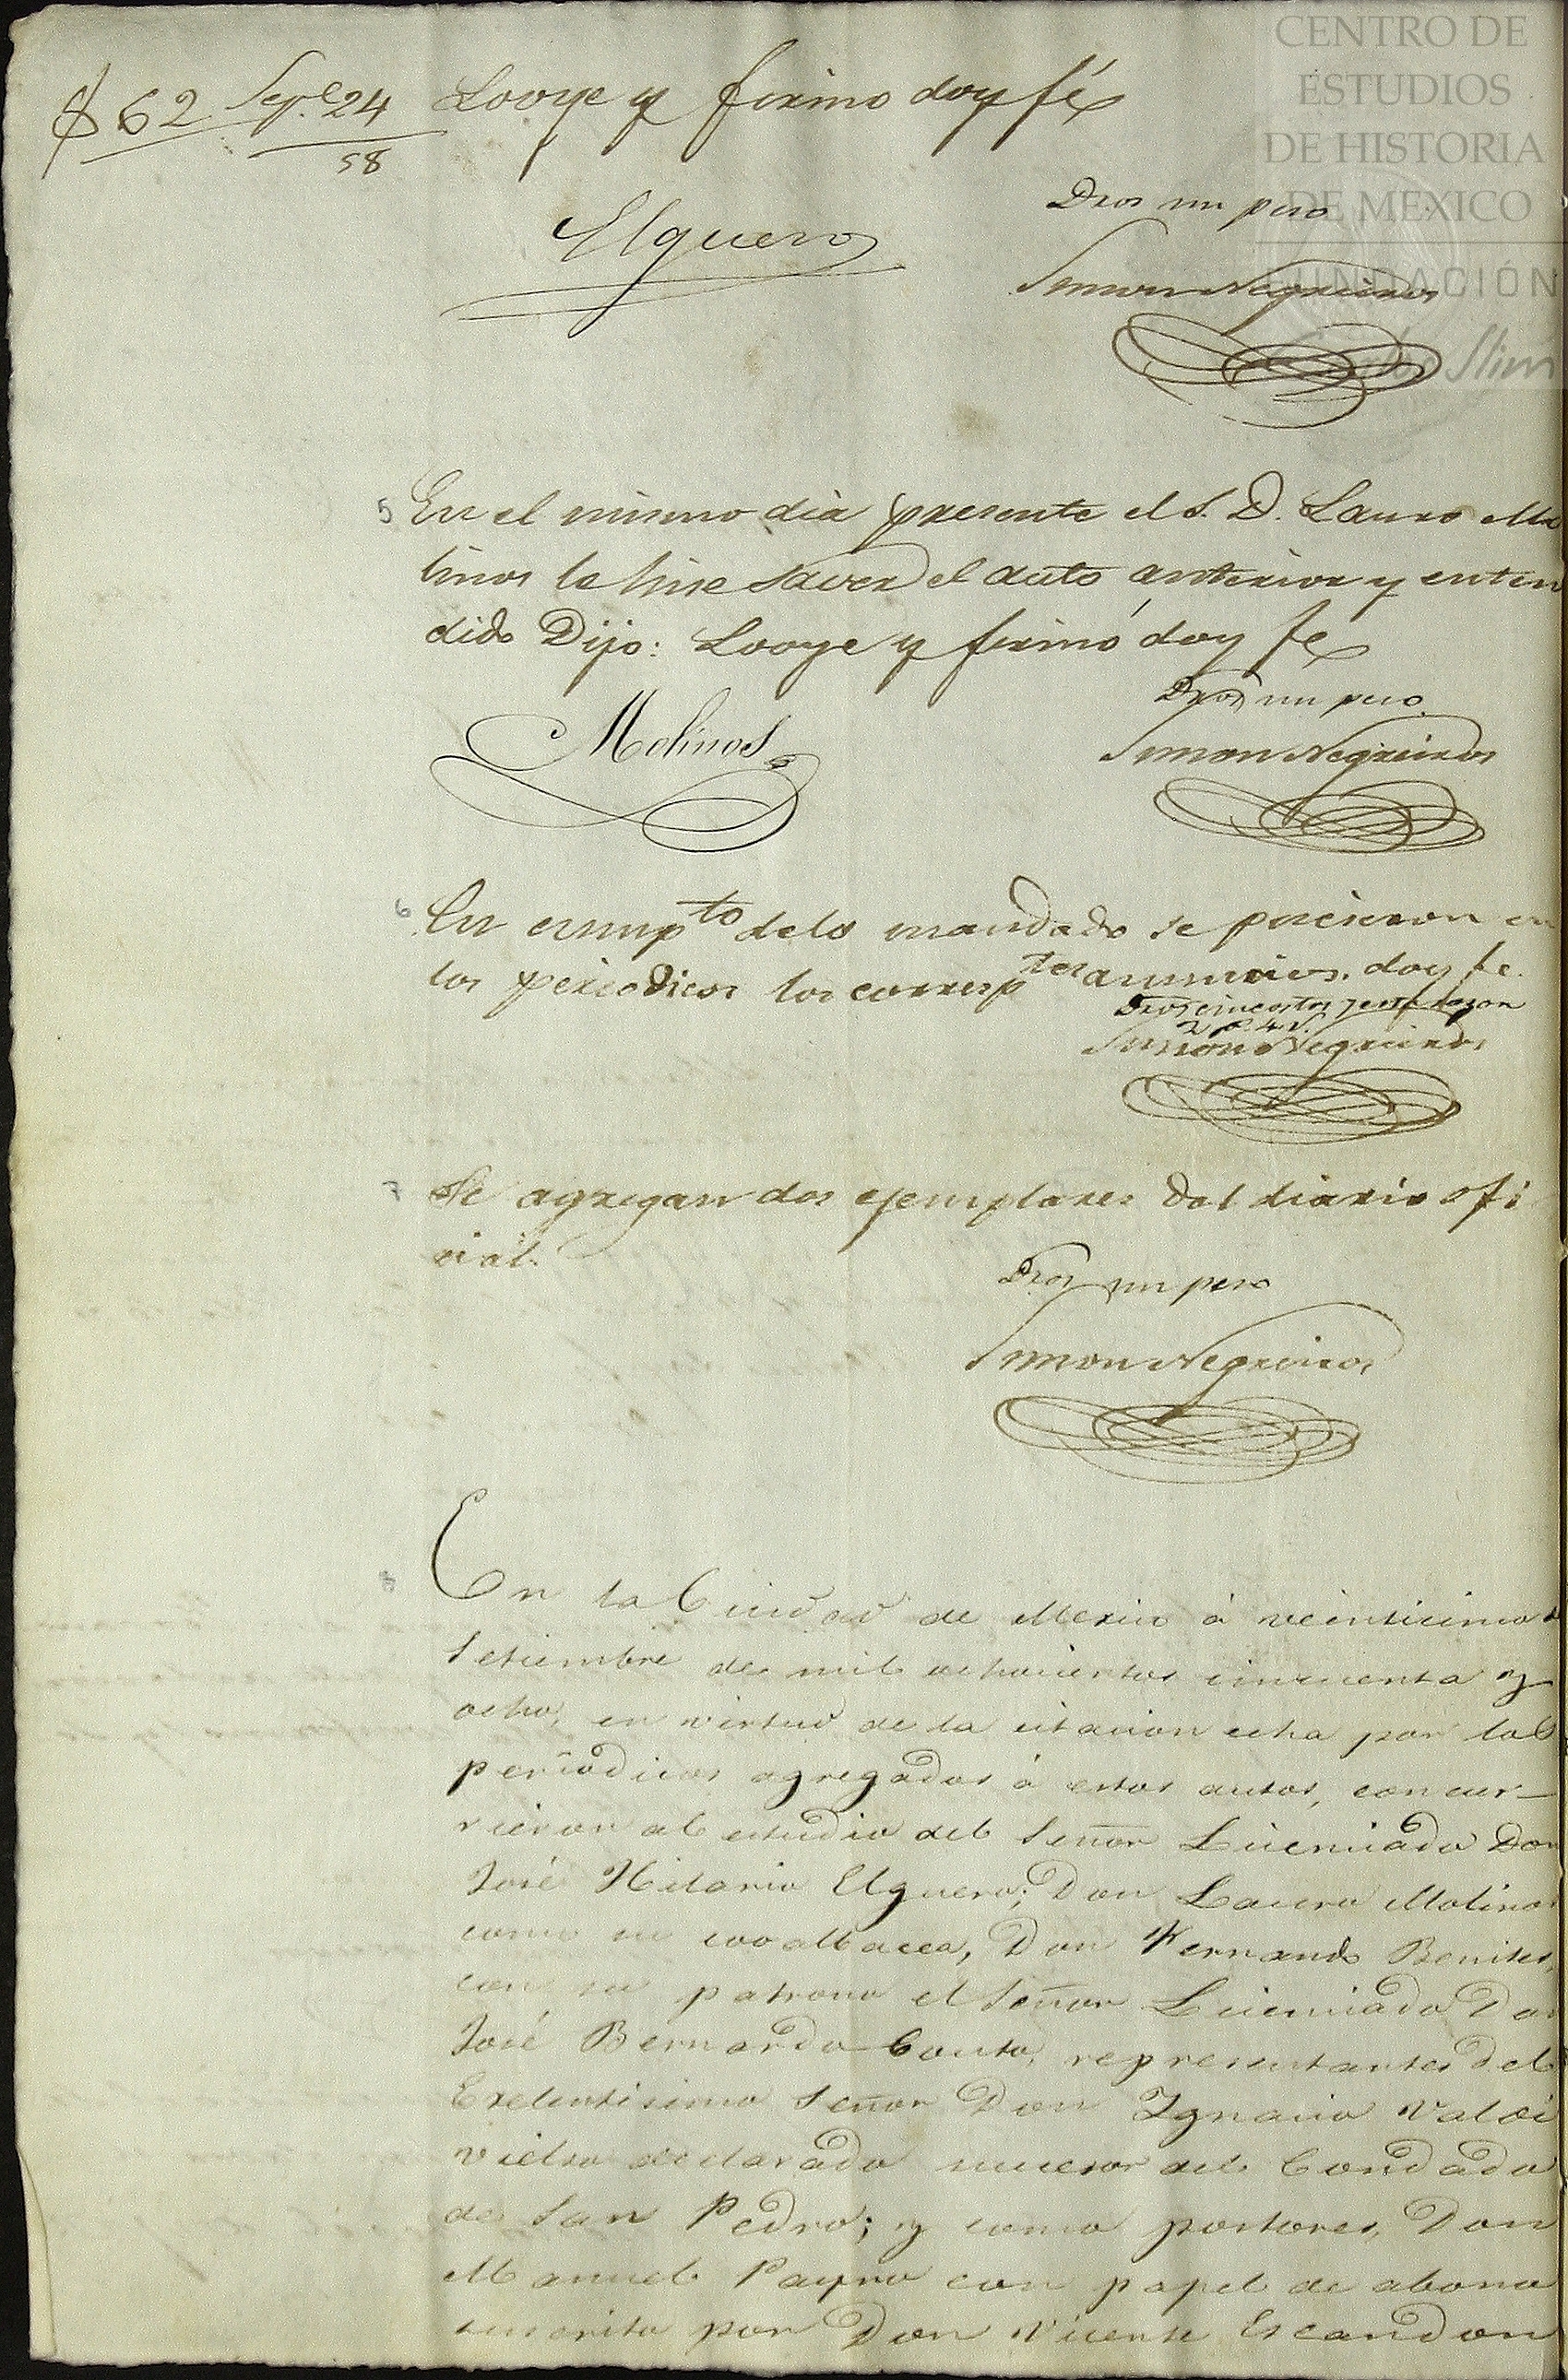 CENTRO DE
ESTUDIOS
DE HISTORIA
DE MEXICO
FUNDACIÓN
Carlos Slim
$62 Sepe. 24
58
Looye y firmo doy fé
Dros un peso
Elguero
Simon Negreiros
5 En el mismo dia presente el S. D. Lauro Mo
linos le hise saver el auto anterior y enten
dido Dijo: Looye y firmó doy fe
Dros un peso
Molinos
Simon Negreiros
6 En cumpto delo mandado se pucieron en
los periodicos los corresptes anuncios. doy fe.
Dros
2 p. 4 r.
Simon Negreiros
7 Se agregan dos ejemplares del diario ofi
cial.
Dros un peso
Simon Negreiros
8 En la Ciudad de Mexico á veinticinco de
Setiembre de mil ochocientos cincuenta y
ocho, en virtud de la citacion echa por los
periódicos agregados á estos autos, concur-
rieron al estudio del Señor Licenciado Don
José Hilario Elguero; Don Lauro Molinos
como su cooalbacea, Don Fernando Benites,
con su patrono el Señor Licenciado Don
José Bernardo Couto, representantes del
Exelentisimo Señor Don Ygnacio Valdi
vielso declarado sucesor del Condado
de San Pedro; y como postores, Don
Manuel Payno con papel de abono
suscrito por Don Vicente Escandon